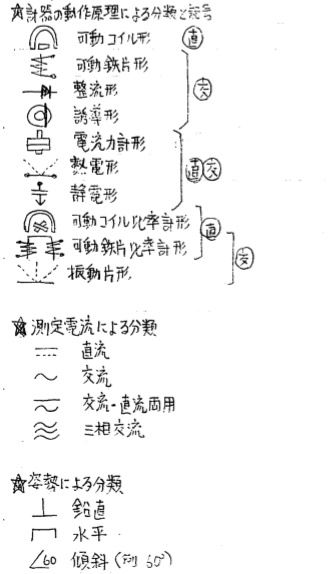 ☆計器の動作原理による分類と記号
可動コイル形 直
可動鉄片形
整流形 交
誘導形
電流力計形
熱電形 直交
静電形
可動コイル比率計形
可動鉄片比率計形 直
振動片形 交
☆測定電流による分類
直流
交流
交流・直流両用
三相交流
☆姿勢による分類
鉛直
水平
∠60 傾斜(例 60°)